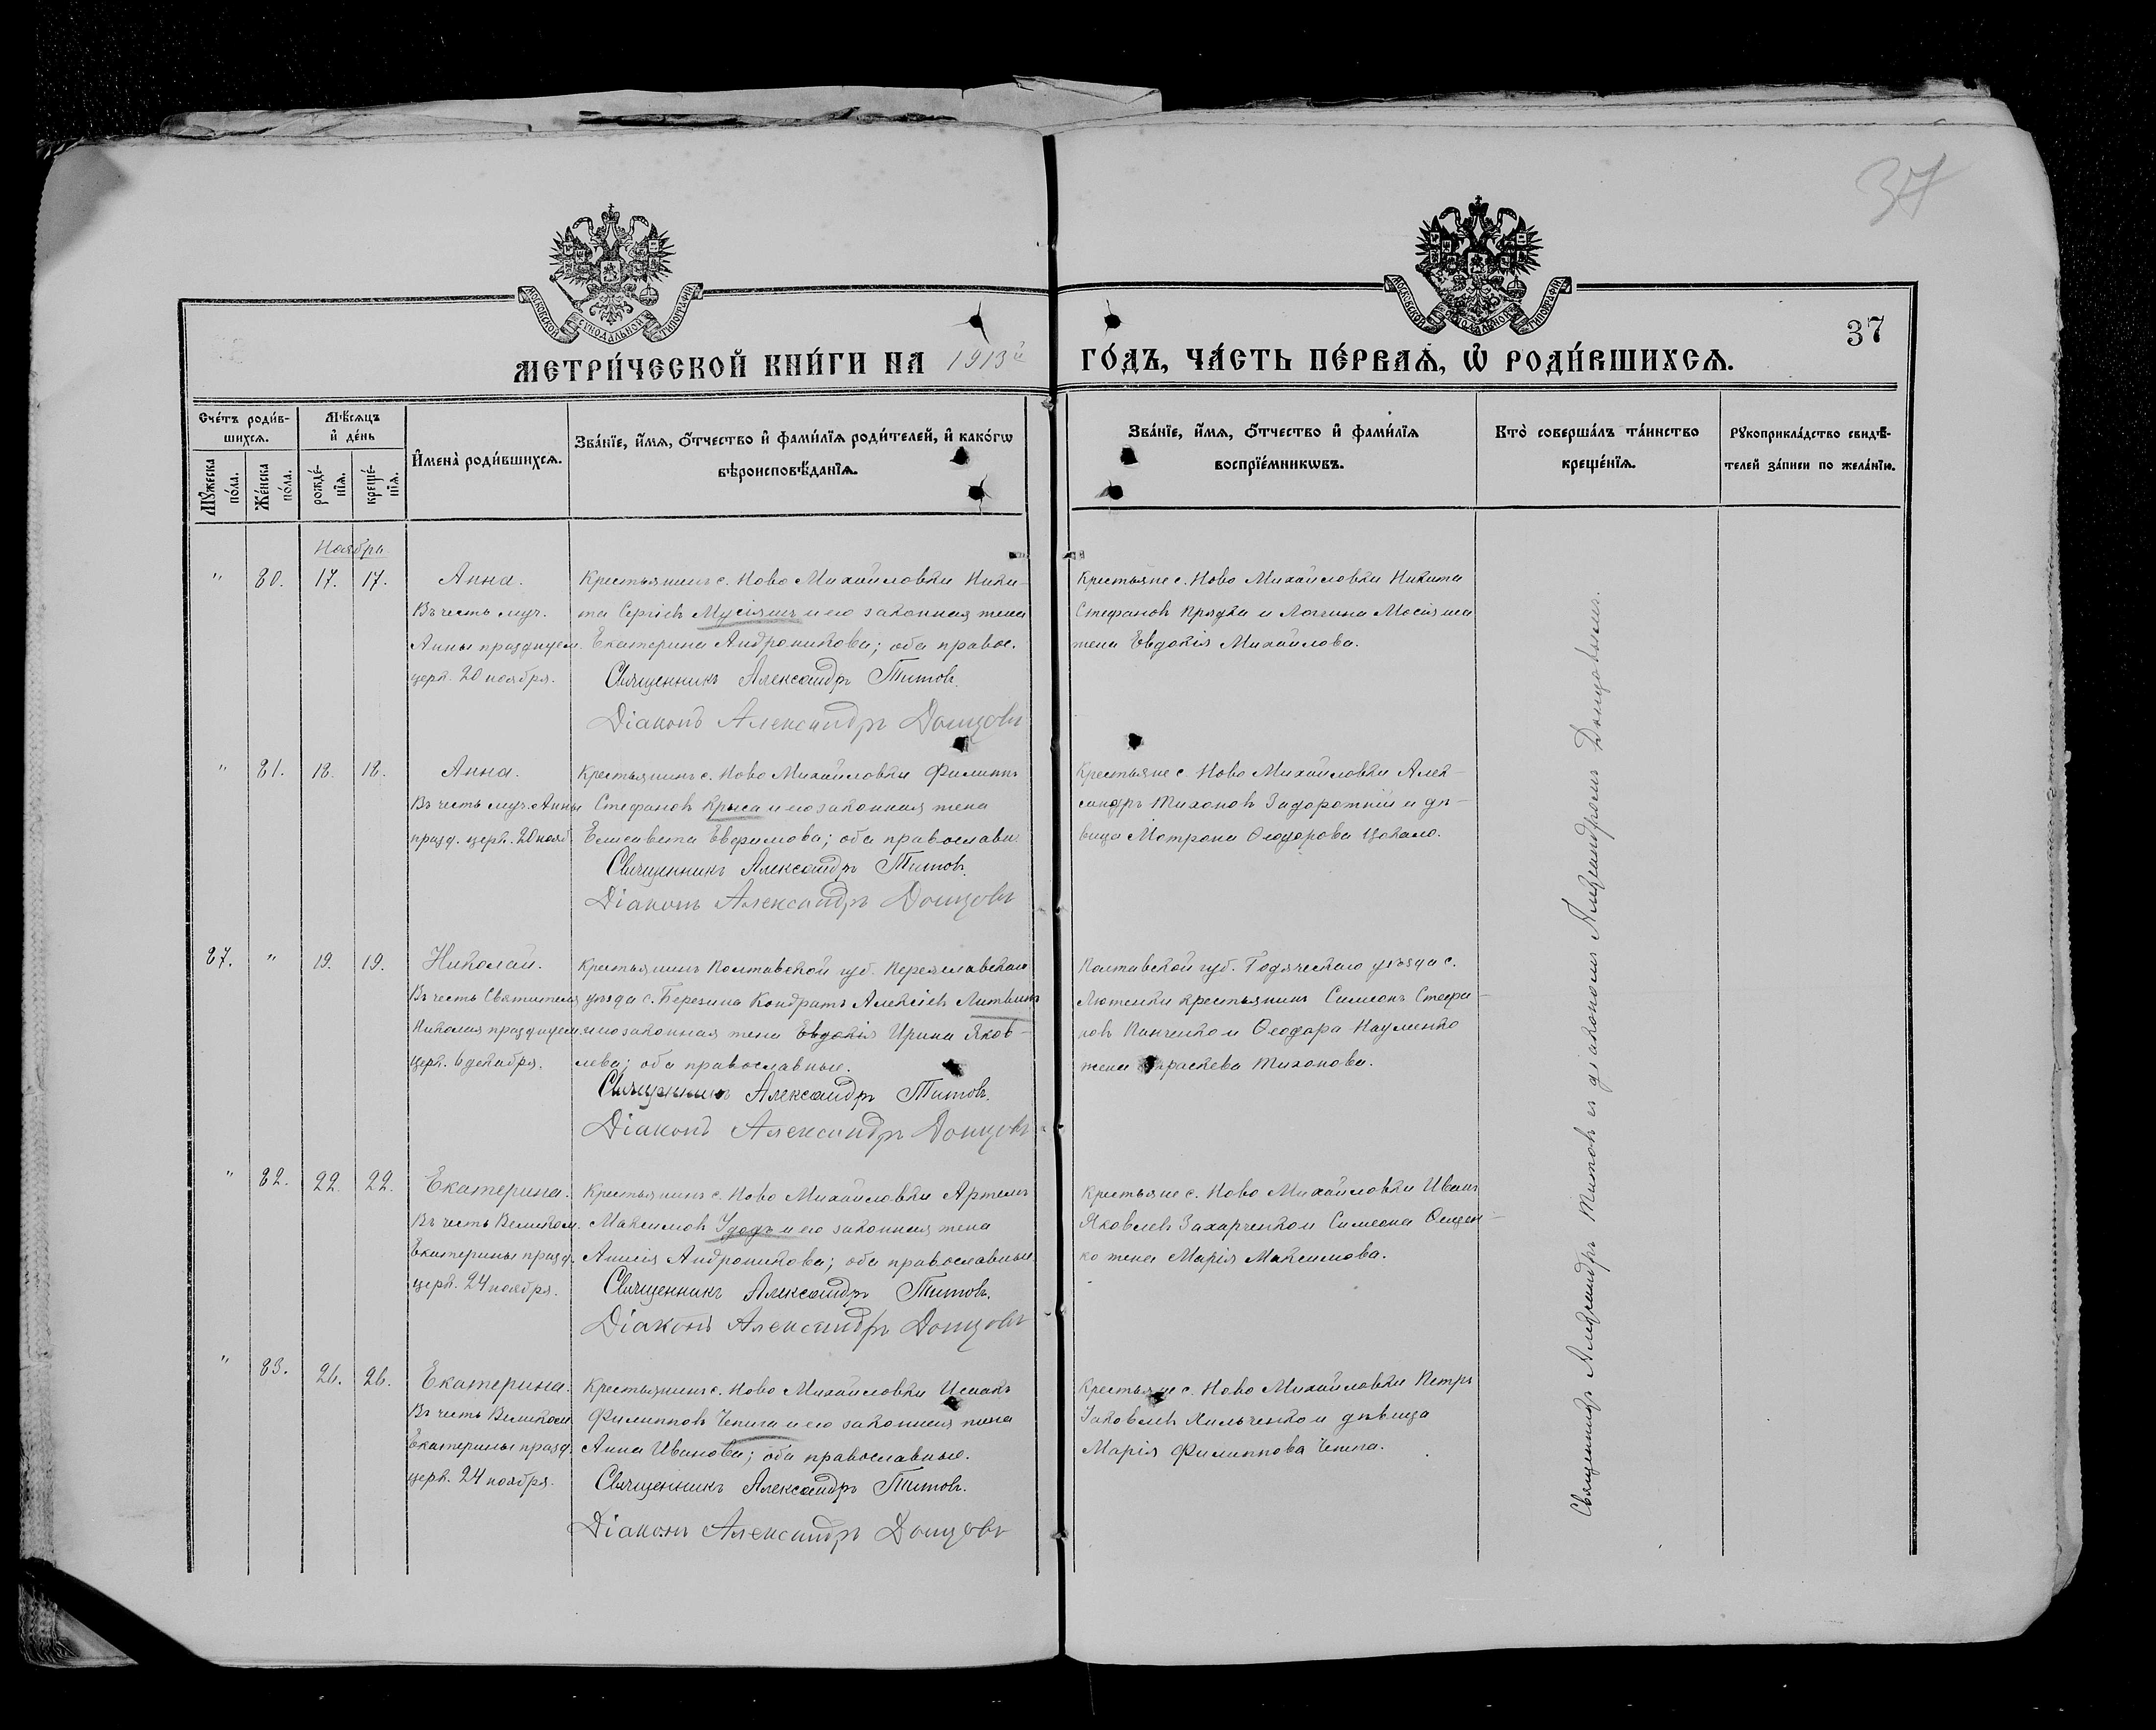 37
МОСКОВСКОЙ СѴНОДАЛЬНОЙ ТИПОГРАФІИ
МОСКОВСКОЙ СѴНОДАЛЬНОЙ ТИПОГРАФІИ
37
МЕТРИ́ЧЕСКОЙ КНИ́ГИ НА 1913й ГО́ДЪ, ЧА́СТЬ ПЕ́РВАѦ, Ѡ҆ РОДИ́ВШИХСѦ.
Сче́тъ роди́в-
шихсѧ.
Мꙋ́жеска по́ла.
Же́нска по́ла.
Мѣ́сѧцъ
и҆ де́нь
рожде́-нїѧ.
креще́-нїѧ.
И҆мена̀ роди́вшихсѧ.
Зва́нїе, и҆́мѧ, ѻ҆́тчество и҆ фами́лїѧ роди́телей, и҆ како́гѡ
вѣроисповѣ́данїѧ.
Зва́нїе, и҆́мѧ, ѻ҆́тчество и҆ фами́лїѧ
воспрїе́мникѡвъ.
Кто̀ соверша́лъ та́инство
креще́нїѧ.
Рꙋкоприкла́дство свидѣ́-
телей за́писи по жела́нїю.
Ноября
" 80. 17. 17. Анна.
Въ честь муч.
Анны празднуем.
церк. 20 ноября.
Крестьянинъ с. Ново Михайловки Ники-
та Сергіевъ Мусіяшъ и его законная жена
Екатерина Андроникова; оба правос.
Священникъ Александръ Титовъ.
Діаконъ Александръ Донцовъ
Крестьяне с. Ново Михайловки Никита
Стефановъ Прядка и Логгина Мосіяша
жена Евдокія Михайлова.
" 81. 18. 18. Анна.
Въ честь муч. Анны
празд. церк. 20 нояб.
Крестьянинъ с. Ново Михайловки Филиппъ
Стефановъ Крыса и его законная жена
Елисавета Евфимова; оба православн.
Священникъ Александръ Титовъ.
Діаконъ Александръ Донцовъ
Крестьяне с. Ново Михайловки Алек-
сандръ Тихоновъ Задорожній и дѣ-
вица Мотрона Ѳеодорова Цокало.
87. " 19. 19. Николай.
Въ честь Святителя
Николая празднуем.
церк. 6 декабря.
Крестьянинъ Полтавской губ. Переяславскаго
уѣзда с. Березина Кондратъ Алексіевъ Литвинъ
и его законная жена Евдокія Ирина Яков-
лева; оба православные.
Священникъ Александръ Титовъ.
Діаконъ Александръ Донцовъ
Полтавской губ. Гадяческаго уѣзда с.
Лютенки крестьянинъ Симеонъ Стефа-
новъ Панченко и Ѳеодора Науменко
жена Параскева Тихонова.
" 82. 22. 22. Екатерина.
Въ честь Великом.
Екатерины празд.
церк. 24 ноября.
Крестьянинъ с. Ново Михайловки Артемъ
Максимовъ Удодъ и его законная жена
Анисія Андроникова; оба православные
Священникъ Александръ Титовъ.
Діаконъ Александръ Донцовъ
Крестьяне с. Ново Михайловки Иванъ
Яковлевъ Захарченко и Симеона Ѳещен-
ко жена Марія Максимова.
" 83. 26. 26. Екатерина.
Въ честь Великом.
Екатерины празд.
церк. 24 ноября.
Крестьянинъ с. Ново Михайловки Исаакъ
Филипповъ Чепига и его законная жена
Анна Иванова; оба православные.
Священникъ Александръ Титовъ.
Діаконъ Александръ Донцовъ
Крестьяне с. Ново Михайловки Петръ
Іаковлевъ Хильченко и дѣвица
Марія Филиппова Чепига.
Священникъ Александръ Титовъ съ діакономъ Александромъ Донцовымъ.